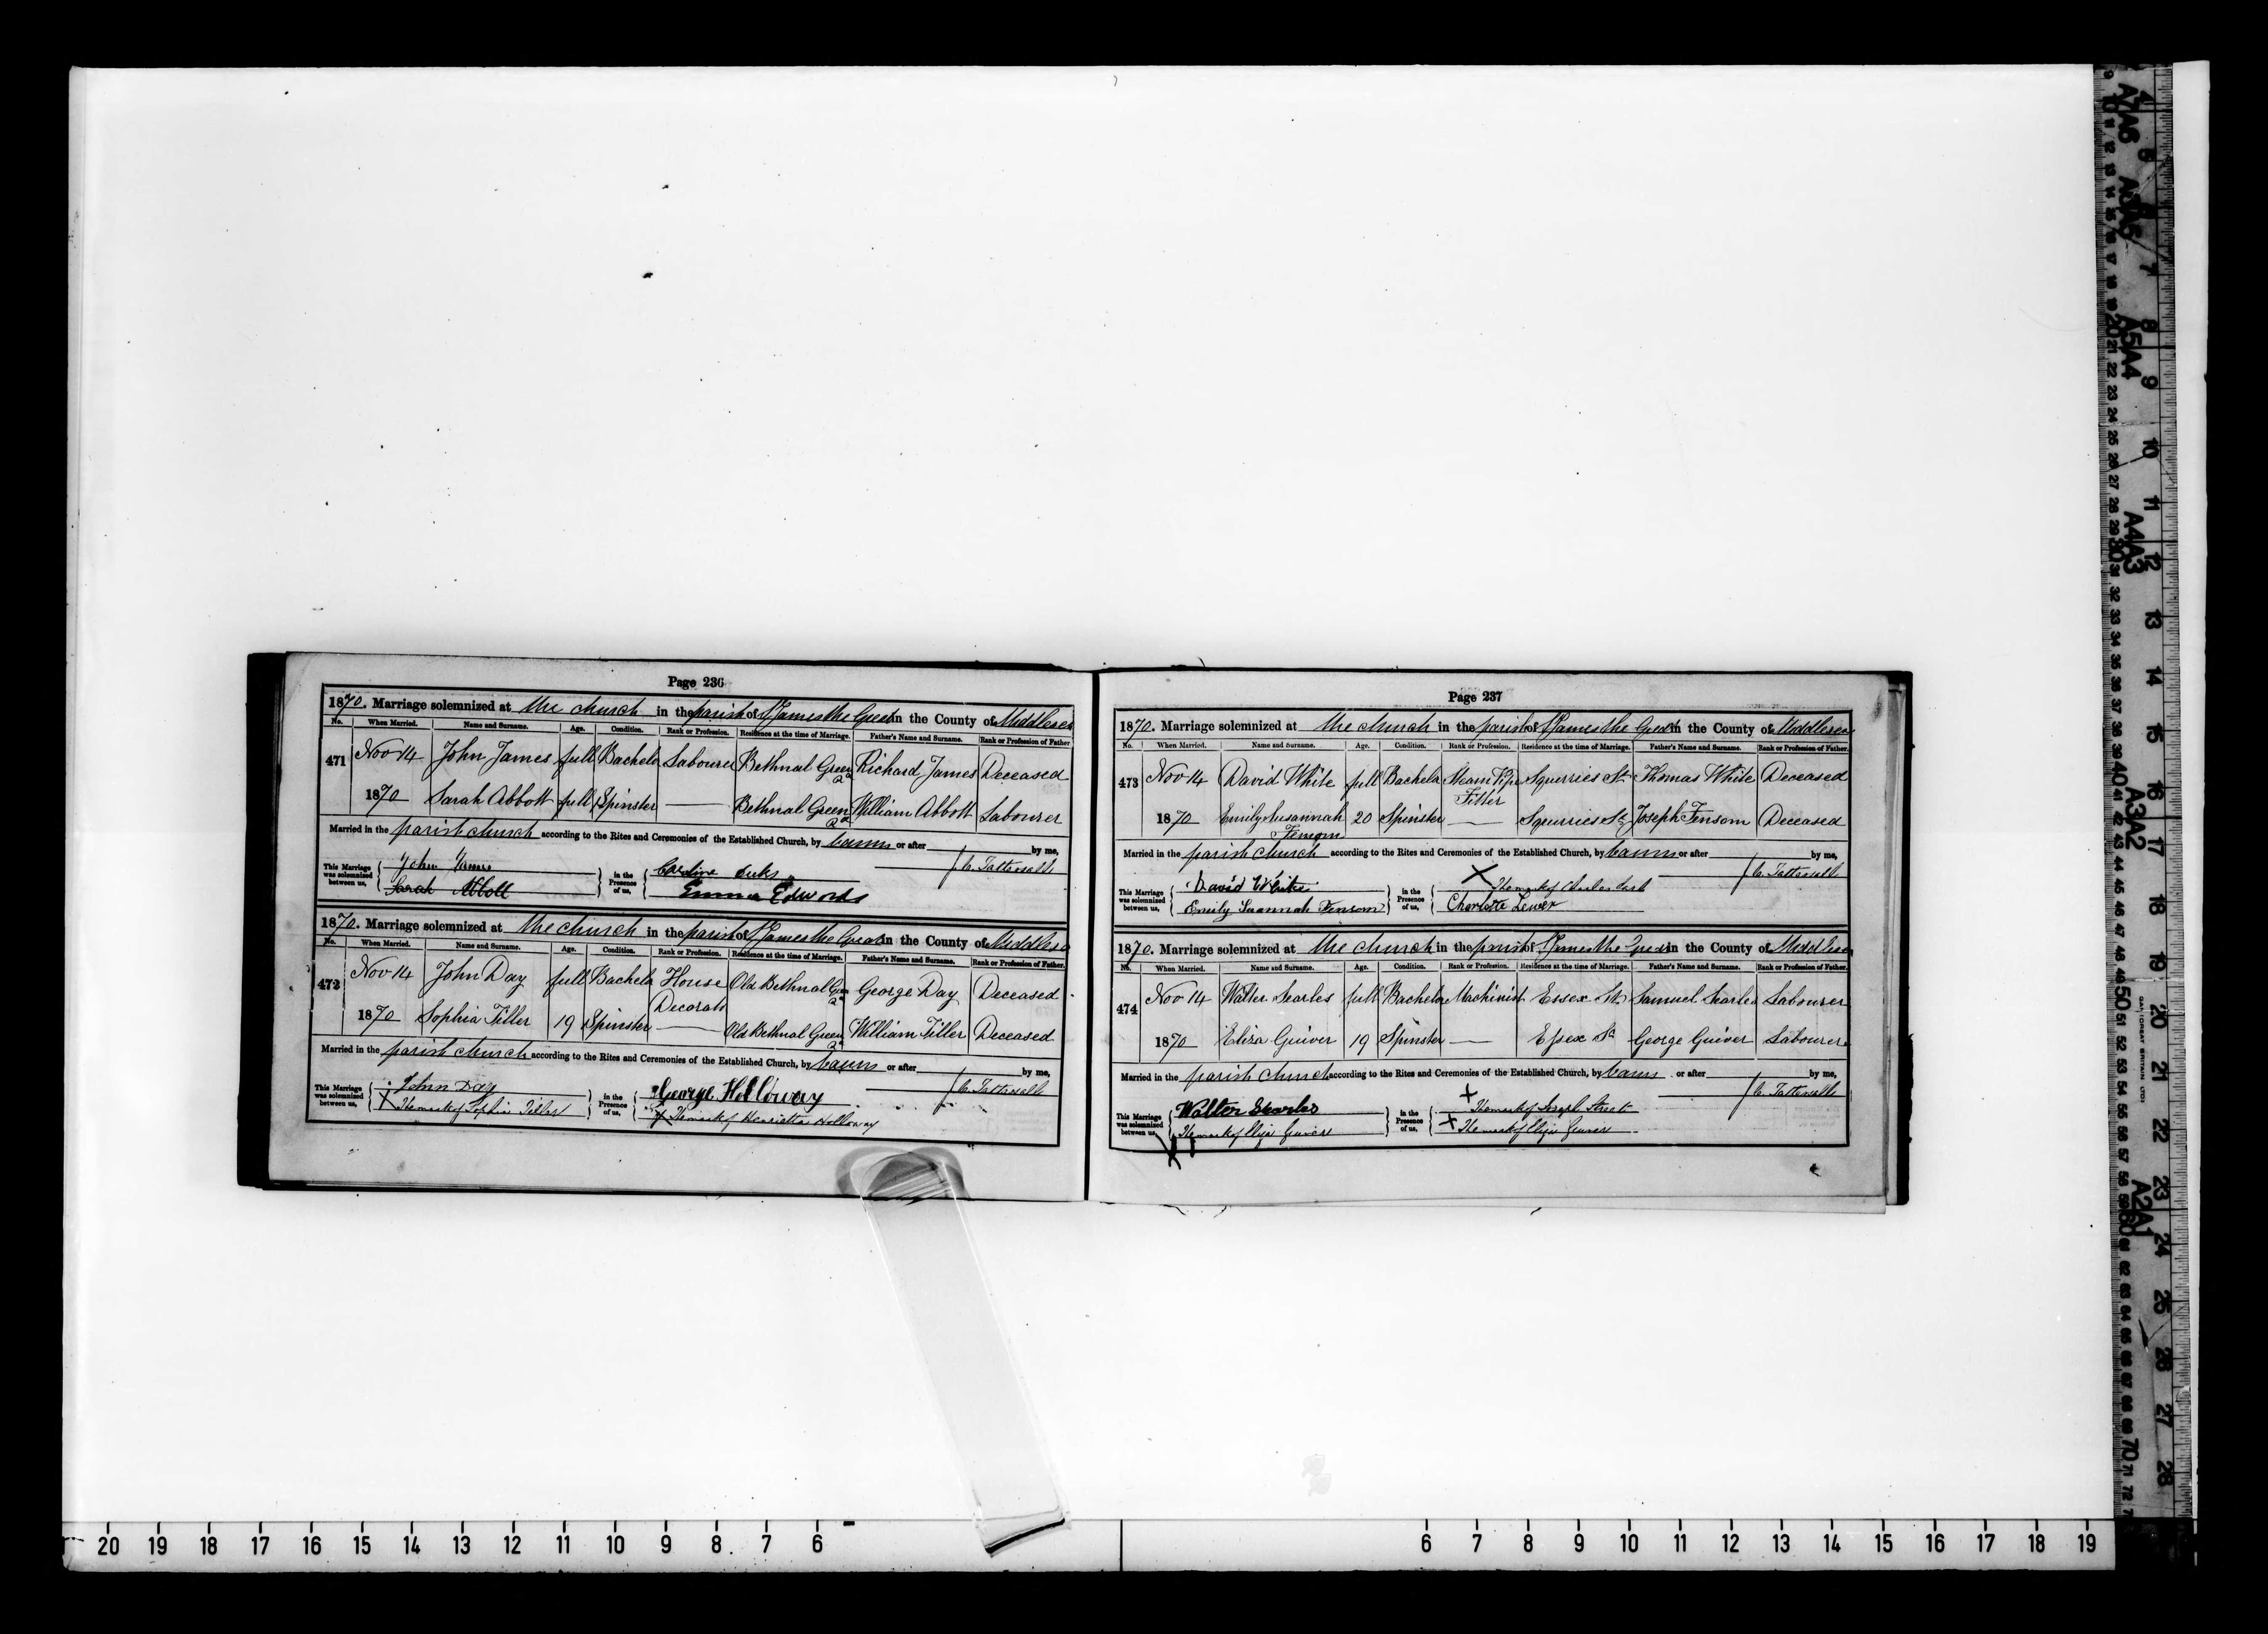 Page 236
1870. Marriage solemnized at the church in the parish of St James the Great in the County of Middlesex
No. When Married. Name and Surname. Age. Condition. Rank or Profession. Residence at the time of Marriage. Father's Name and Surname. Rank or Profession of Father
471 Nov 14 John James full Bachelo Labourer Bethnal Green Rd Richard James Deceased
1870 Sarah Abbott full Spinster Bethnal Green Rd William Abbott Labourer
Married in the parish church according to the Rites and Ceremonies of the Established Church, by banns or after by me,
This Marriage was solemnized between us, John James Sarah Abbott in the Presence of us, Caroline Emma Edwards C. Tattersall
1870. Marriage solemnized at the church in the parish of St James the Great in the County of Middlesex
No. When Married. Name and Surname. Age. Condition. Rank or Profession. Residence at the time of Marriage. Father's Name and Surname. Rank or Profession of Father.
472 Nov 14 John Day full Bachelo House Decorato Old Bethnal Green Rd George Day Deceased
1870 Sophia Tiller 19 Spinster Old Bethnal Green Rd William Tiller Deceased
Married in the parish church according to the Rites and Ceremonies of the Established Church, by banns or after by me,
This Marriage was solemnized between us, John Day X The mark of Sophia Tiller in the Presence of us, George Holloway X The mark of Henrietta Holloway C. Tattersall
Page 237
1870. Marriage solemnized at the church in the parish of St James the Great in the County of Middlesex
No. When Married. Name and Surname. Age. Condition. Rank or Profession. Residence at the time of Marriage. Father's Name and Surname. Rank or Profession of Father.
473 Nov 14 David White full Bachelo Steam Pipe Fitter Squerries St Thomas White Deceased
1870 Emily Susannah Fensom 20 Spinster Squerries St Joseph Fensom Deceased
Married in the parish church according to the Rites and Ceremonies of the Established Church, by banns or after by me,
This Marriage was solemnized between us, David White Emily Susannah Fensom in the Presence of us, X The mark of Charles Charlotte Lewer C. Tattersall
1870. Marriage solemnized at the church in the parish of St James the Great in the County of Middlesex
No. When Married. Name and Surname. Age. Condition. Rank or Profession. Residence at the time of Marriage. Father's Name and Surname. Rank or Profession of Father.
474 Nov 14 Walter Searles full Bachelor Machinist Essex St Samuel Searles Labourer
1870 Eliza Guiver 19 Spinster Essex St George Guiver Labourer
Married in the parish church according to the Rites and Ceremonies of the Established Church, by banns or after by me,
This Marriage was solemnized between us, Walter Searles X The mark of Eliza Guiver in the Presence of us, X The mark of Joseph Street X The mark of Eliza Guiver C. Tattersall
20 19 18 17 16 15 14 13 12 11 10 9 8 7 6 6 7 8 9 10 11 12 13 14 15 16 17 18 19